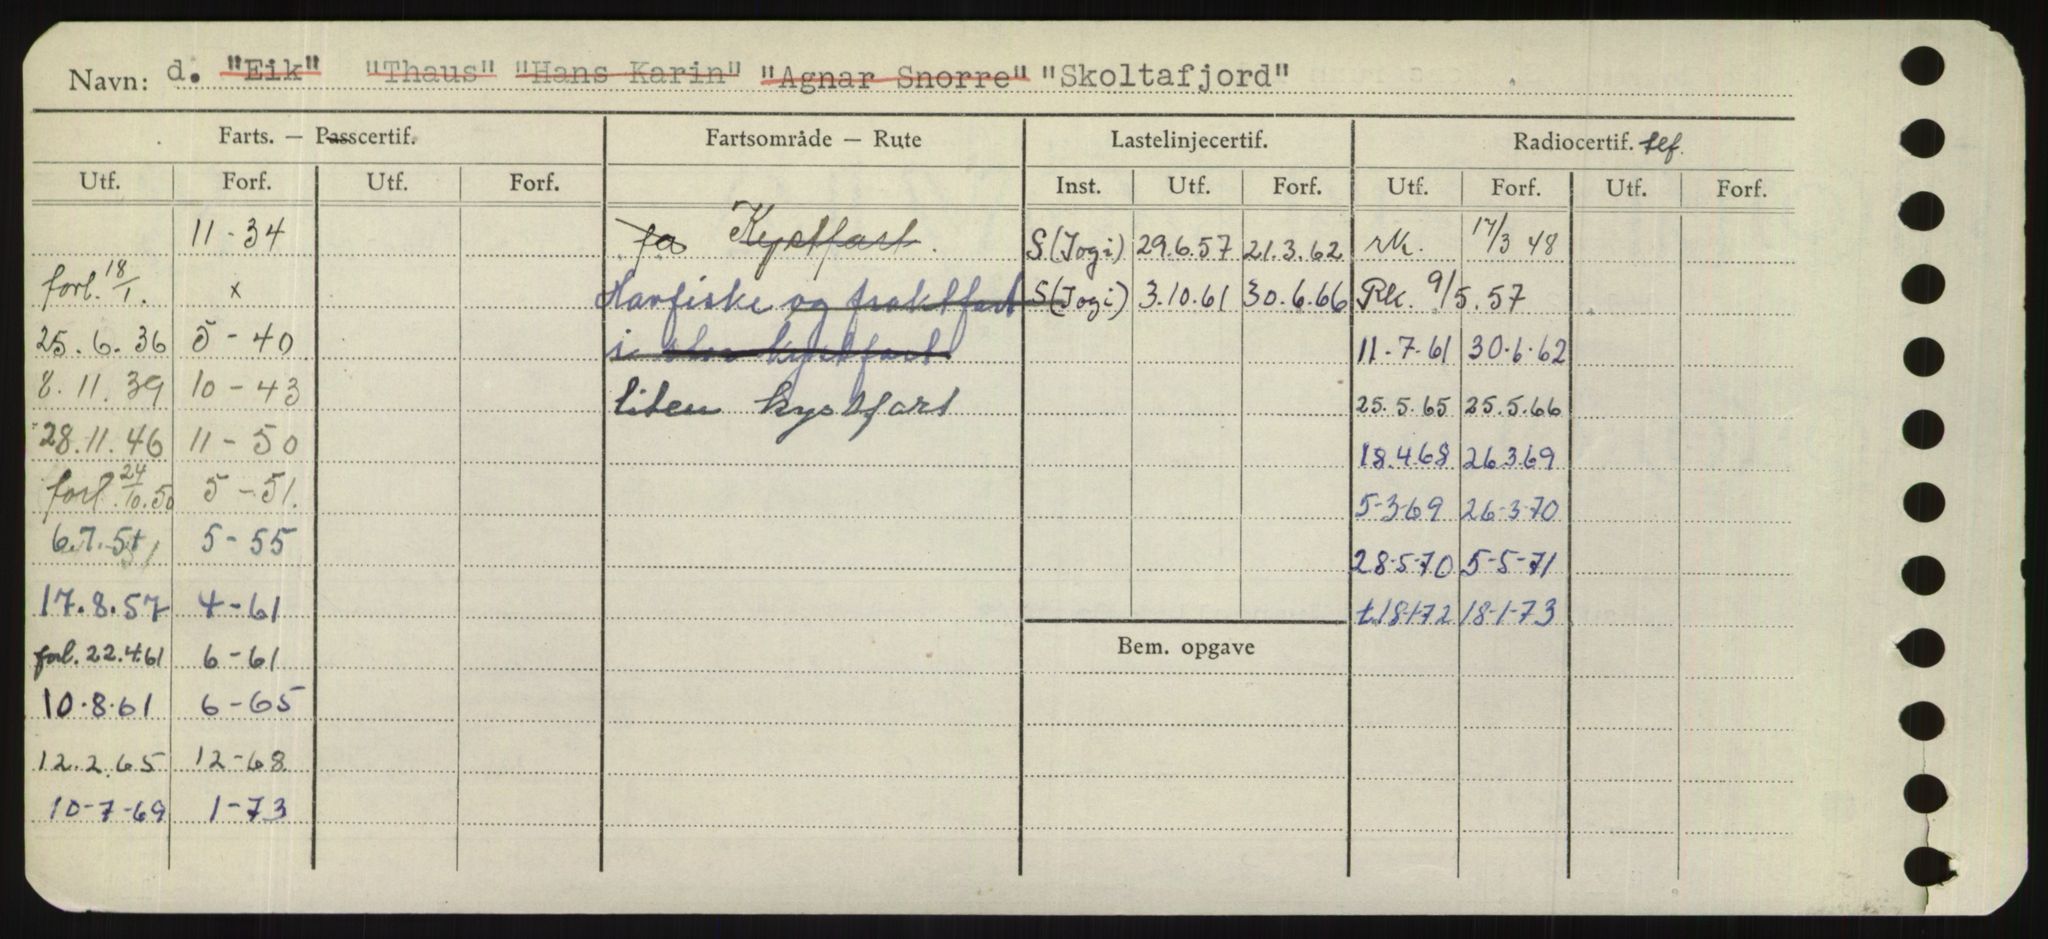 Navn: d. "Eik" "Thaus" "Hans Karin" "Agnar Snorre" "Skoltafjord"
Farts. — Passcertif. Fartsområde — Rute Lastelinjecertif. Radiocertif. tlf.
Utf. Forf. Utf. Forf. Inst. Utf. Forf. Utf. Forf. Utf. Forf.
11-34 fa Kystfart. S(Jogi) 29.6.57 21.3.62 rk. 17/3 48
forl. 18/1. x Havfiske og fraktfart S(Jogi) 3.10.61 30.6.66 Rk. 9/5.57
25.6.36 5-40 i stor kystfart 11-7-61 30-6-62
8.11.39 10-43 liten kystfart 25.5.65 25.5.66
28.11.46 11-50 18.4.68 26.3.69
forl. 24/10.50 5-51. 5-3-69 26-3-70
6.7.51 5-55 28-5-70 5-5-71
17.8.57 4-61 t.18-1-72 18-1-73
forl. 22.4.61 6-61 Bem. opgave
10.8.61 6-65
12.2.65 12-68
10-7-69 1-73